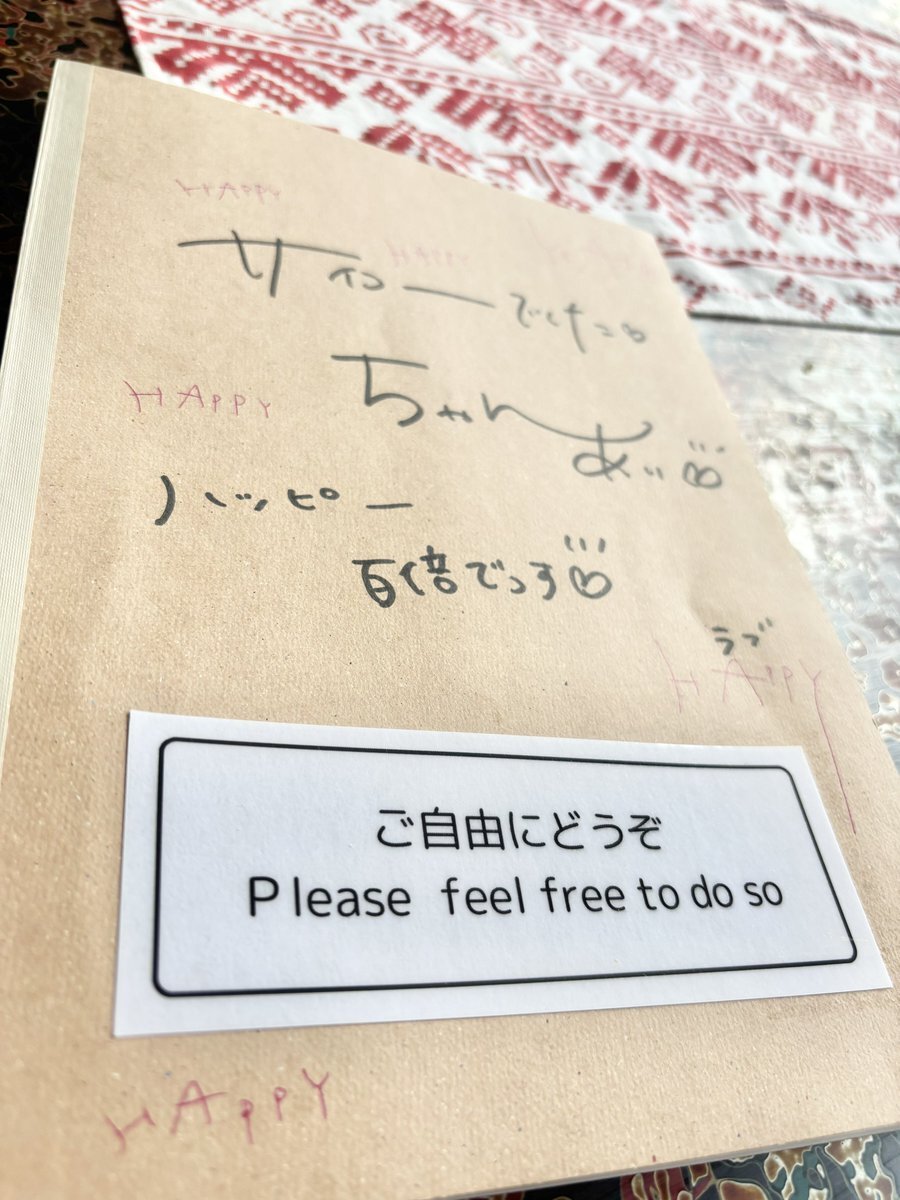 HAPPY
HAPPY
サイコーでけた
ちゃん
HAPPY
あい
ハッピー
百倍でっす
ラブ
HAPPY
ご自由にどうぞ
Please feel free to do so
HAPPY